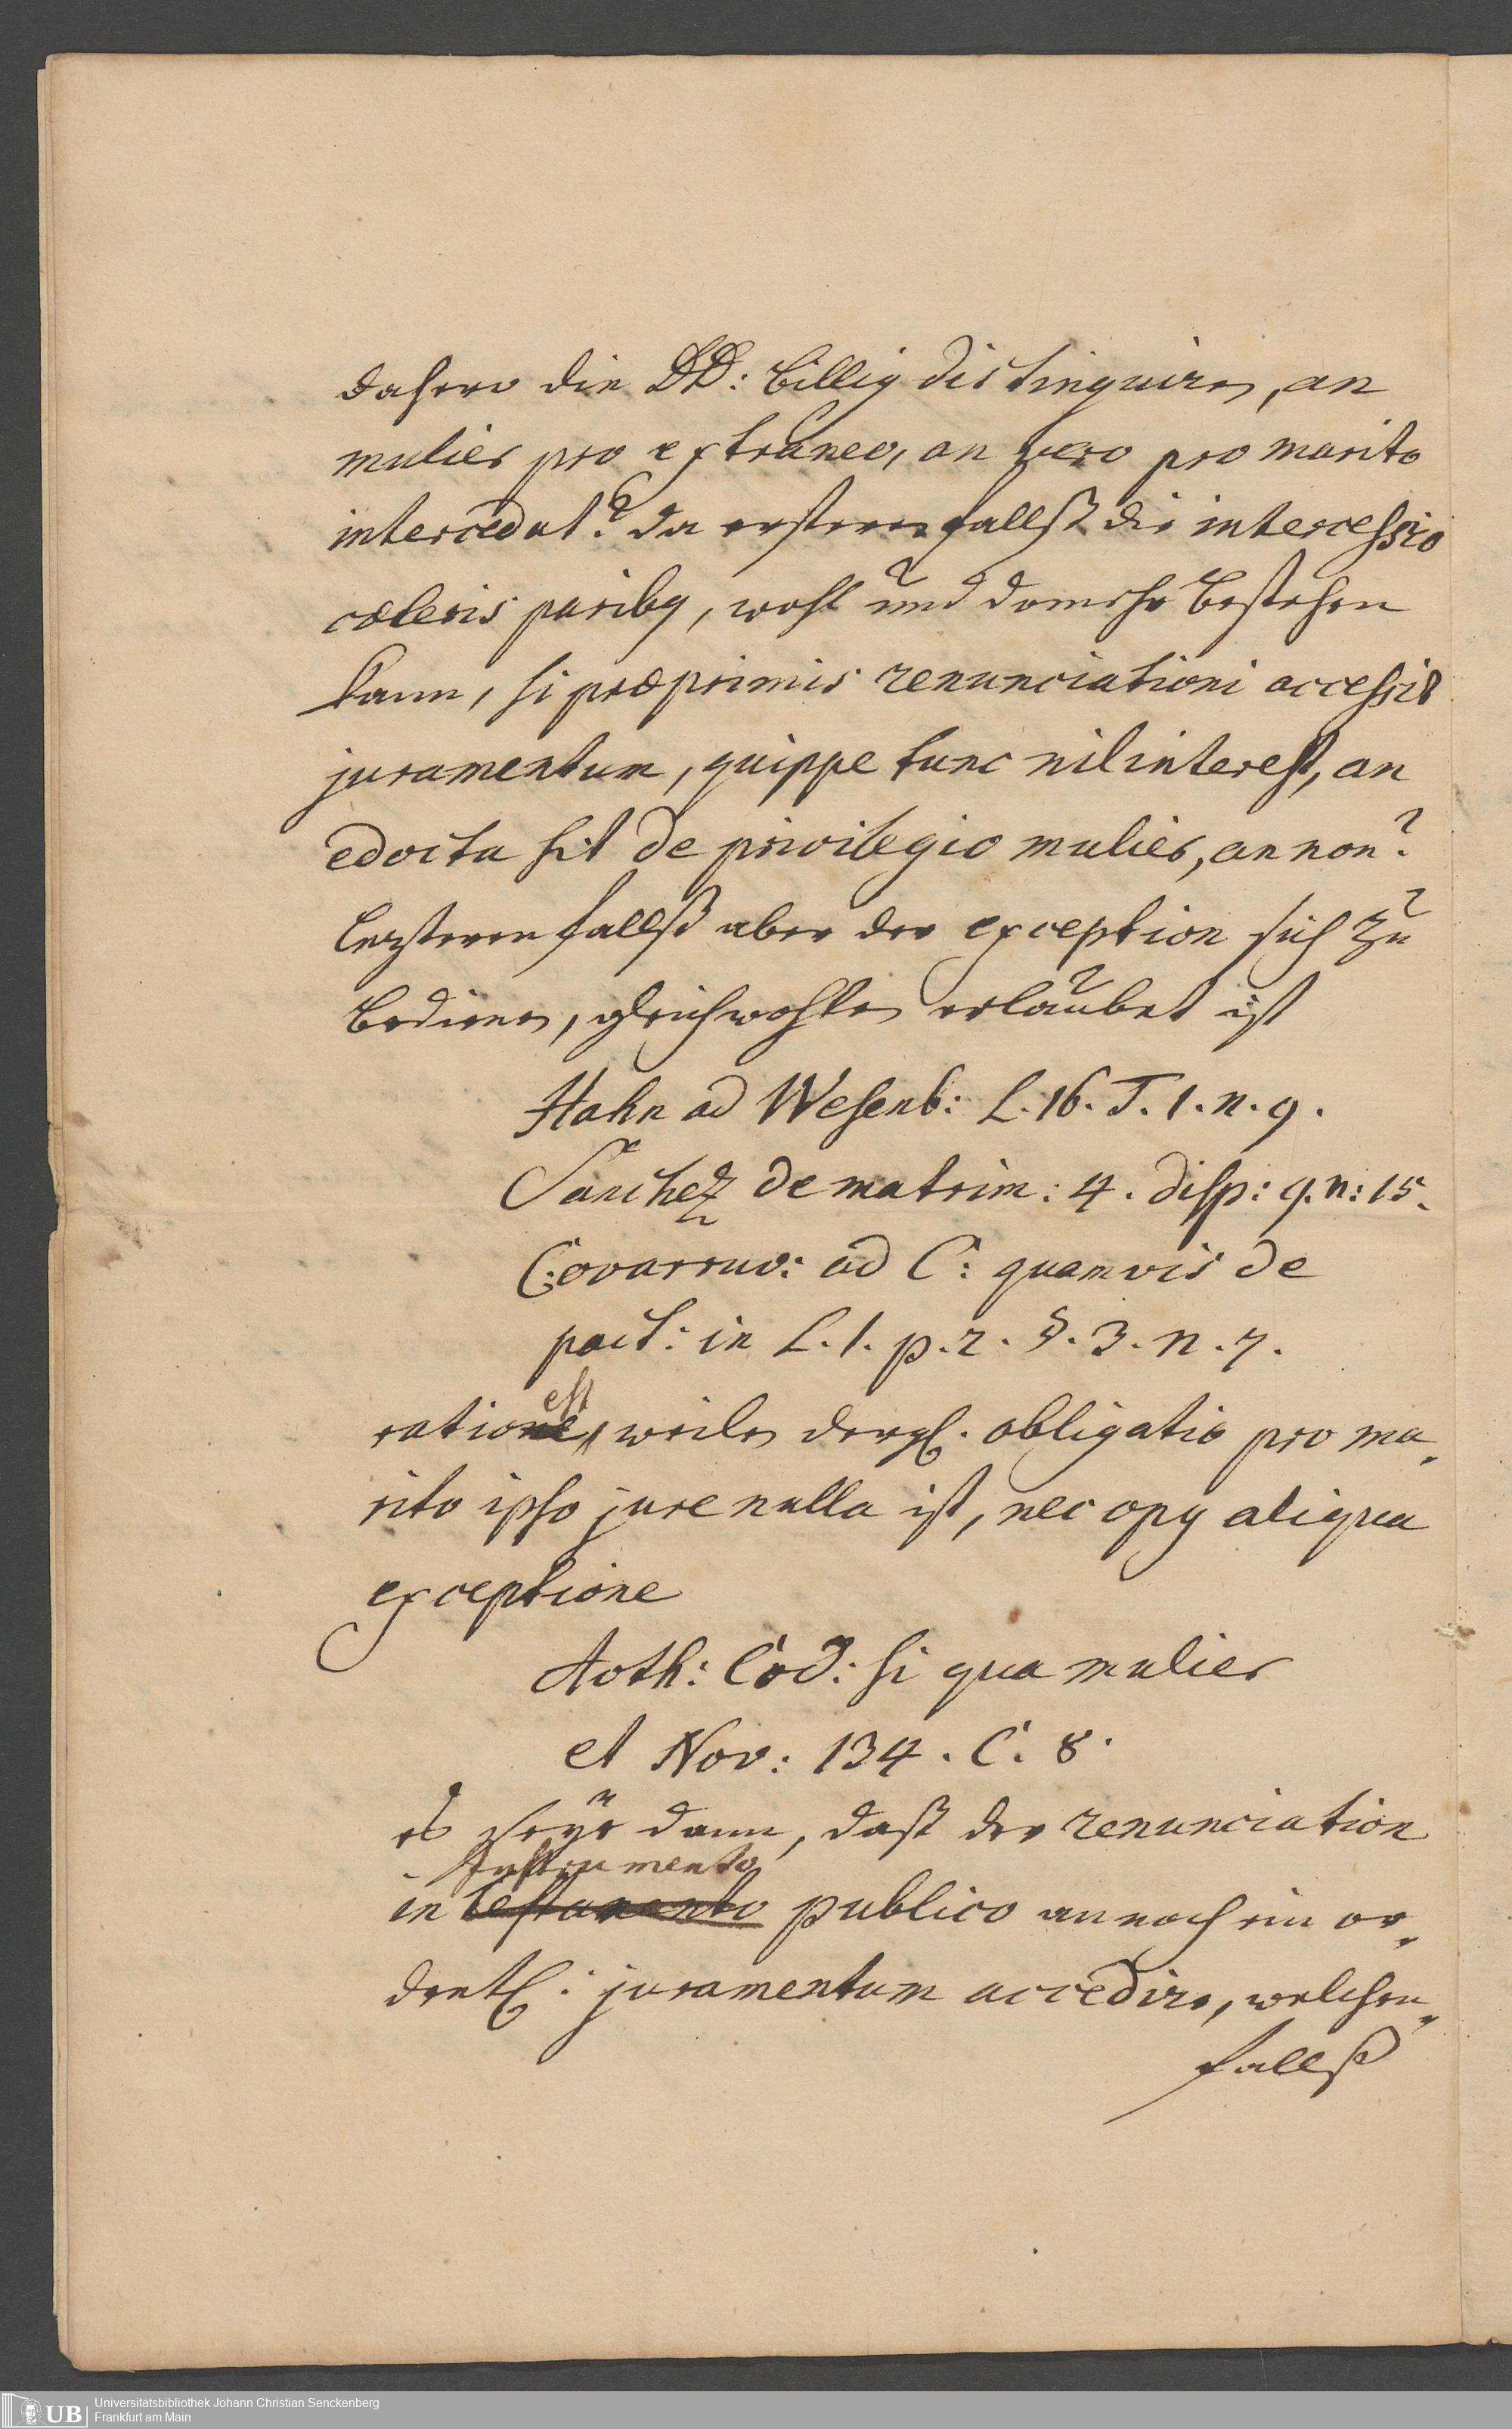 dahero die DD: billig distinguiren, an
mulier pro extraneo, an vero pro marito
intercedat? da ersteren fallß die intercessio
cæteris paribq, wohl und bestehen
kann, si præprimis renunciationi accessit
juramentum, quippe tunc nil interest, an
edocta sit de privilegio mulier, an non?
lezteren fallß aber der exception sich zu
bedienen, gleichwohlen erlaubet ist
Hahn ad Wesenb: L. 16. T. 1. n. 9.
Sanchez de matrim: 4. disp: 9. n: 15.
Covarruv: ad C: quamvis de
pact: in L. 1. p. 2. §. 3. n. 7.
est
ratione, weilen dergl. obligatio pro ma„
rito ipso jure nulla ist, nec opq aliqua
exceptione
Auth: Cod: si qua mulier
et Nov: 134. C. 8.
es seÿe dann, daß der renunciation
Instrumento
in testamento publico annoch ein or„
dentl: juramentum accedire, welchen„
fallß
Universitätsbibliothek Johann Christian Senckenberg
UB Frankfurt am Main